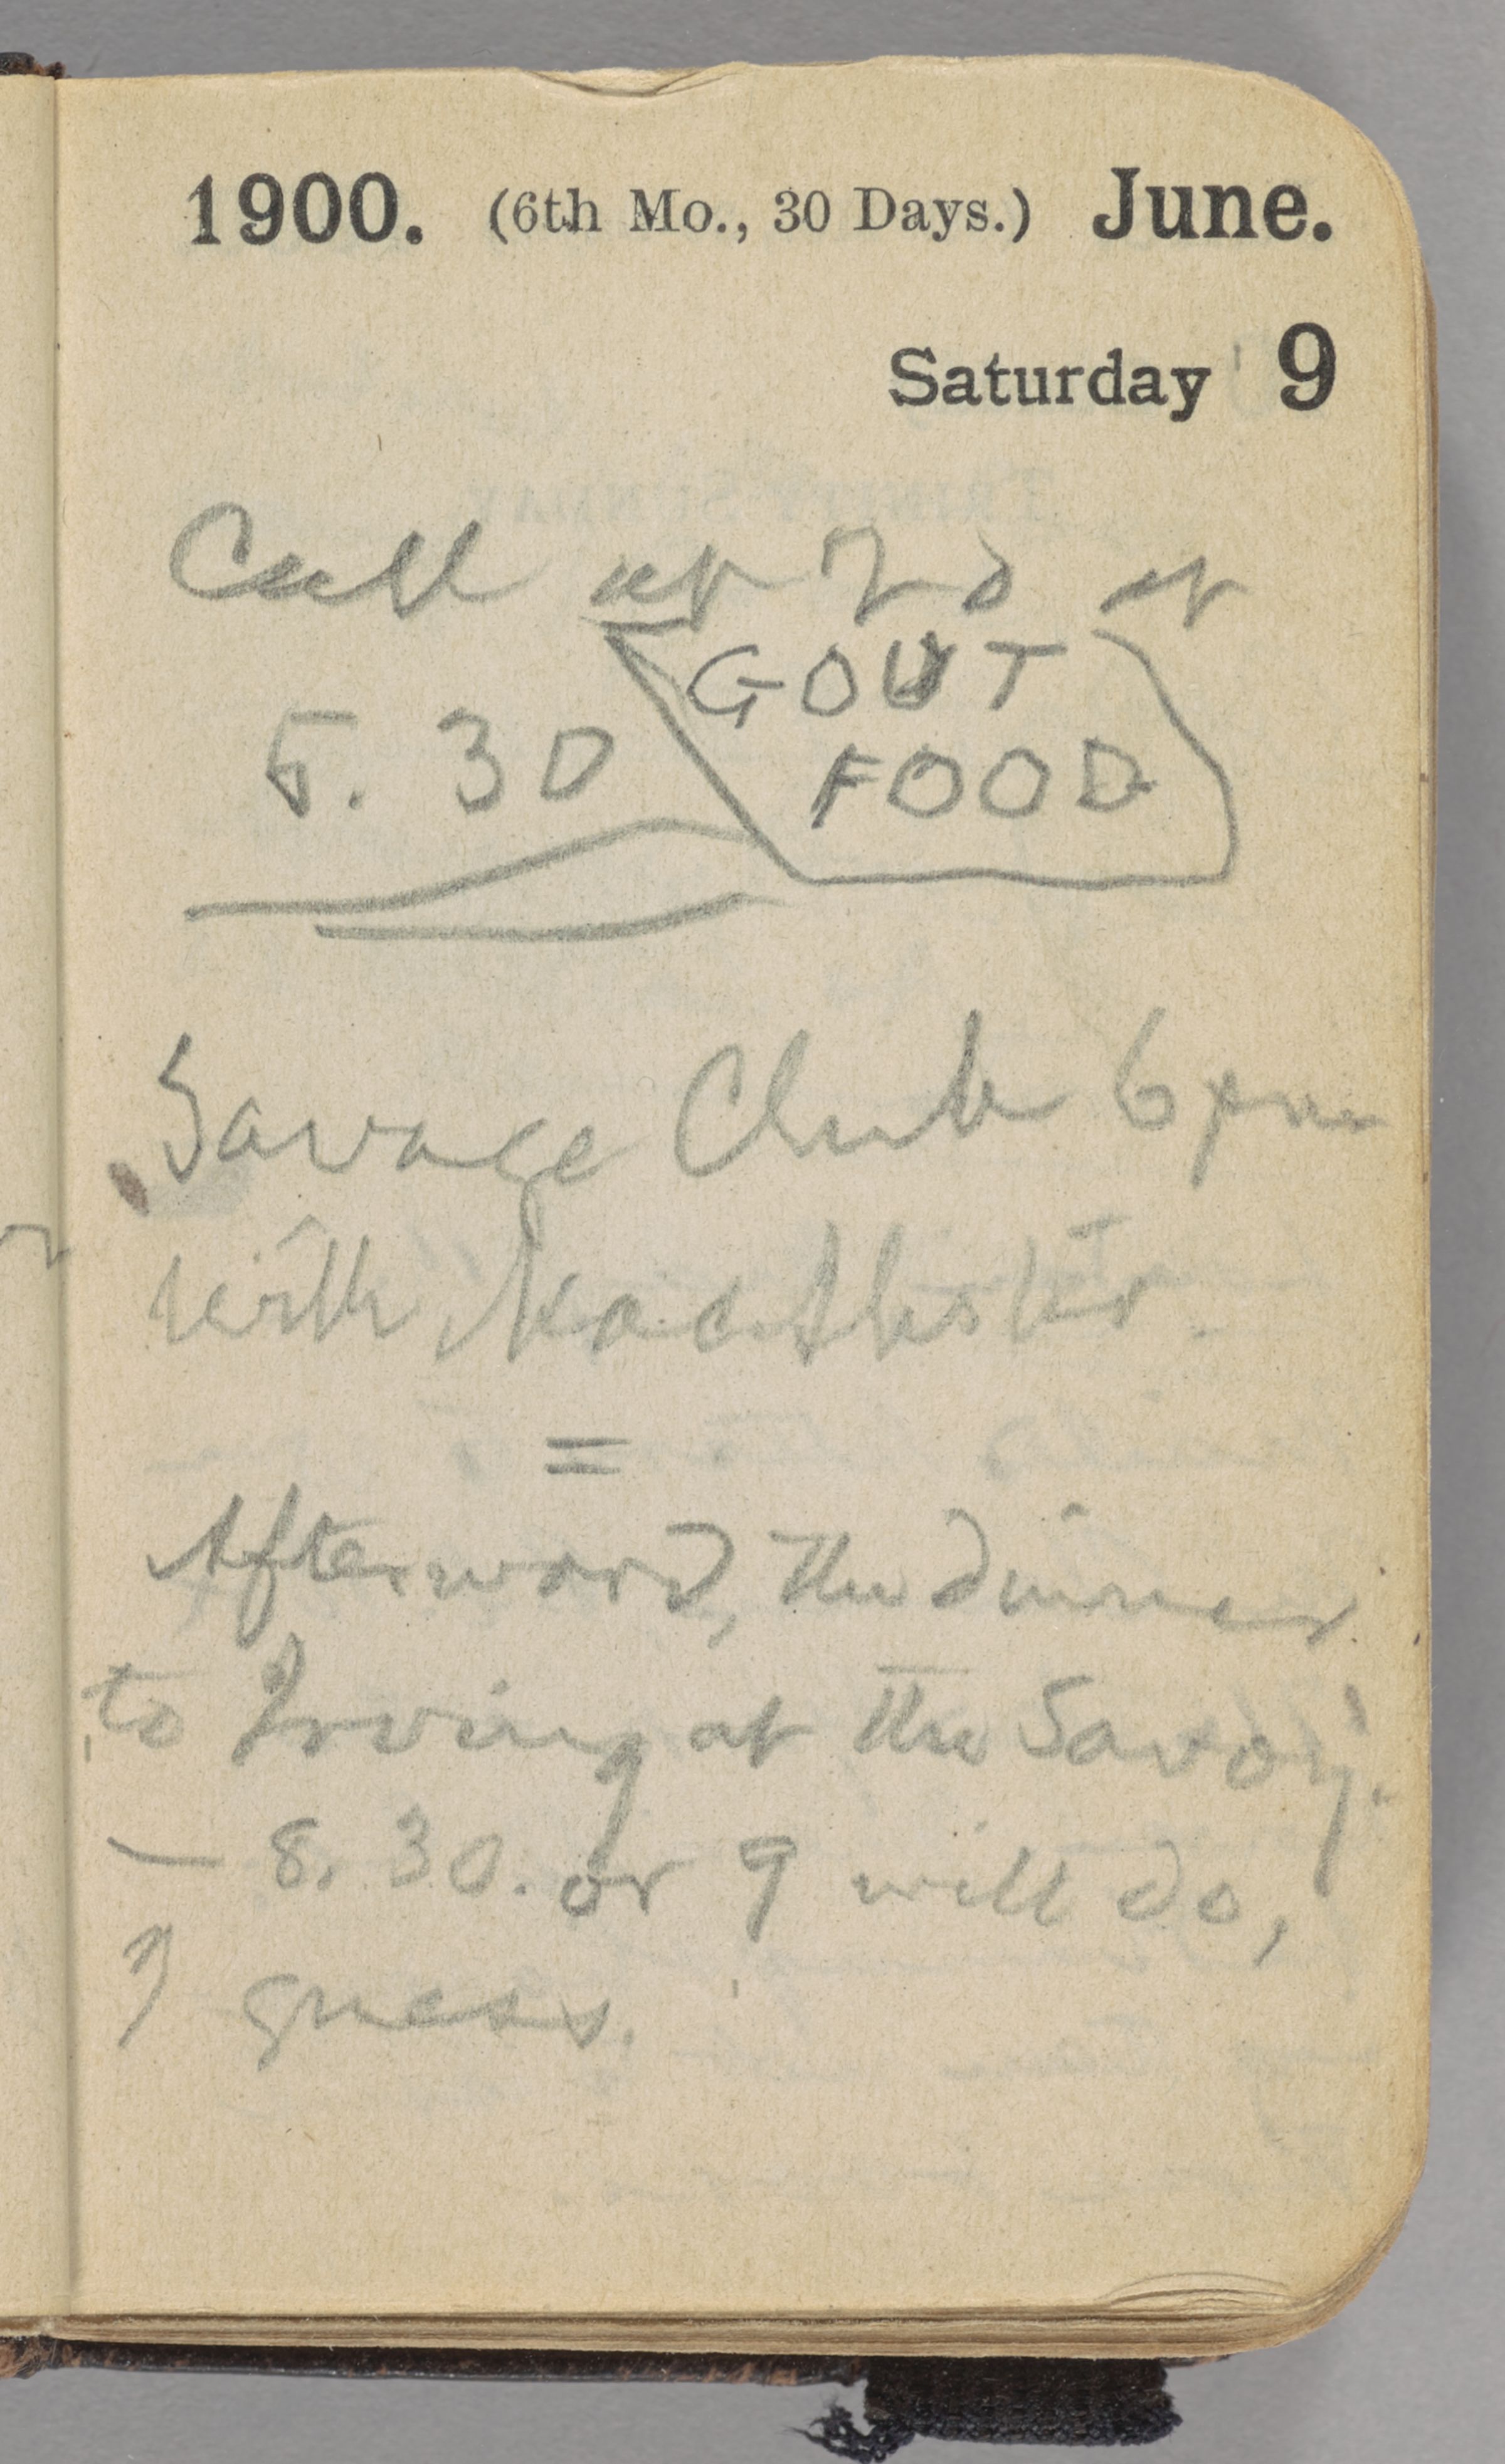 1900. (6th Mo., 30 Days.) June.
Saturday 9
Call at 7d at
GOUT
5. 30
FOOD
Savage Club 6 pm
with MacAlister.
=
Afterward, the dinner
to Irving at the Savoy.
— 8.30. or 9 will do,
I guess.